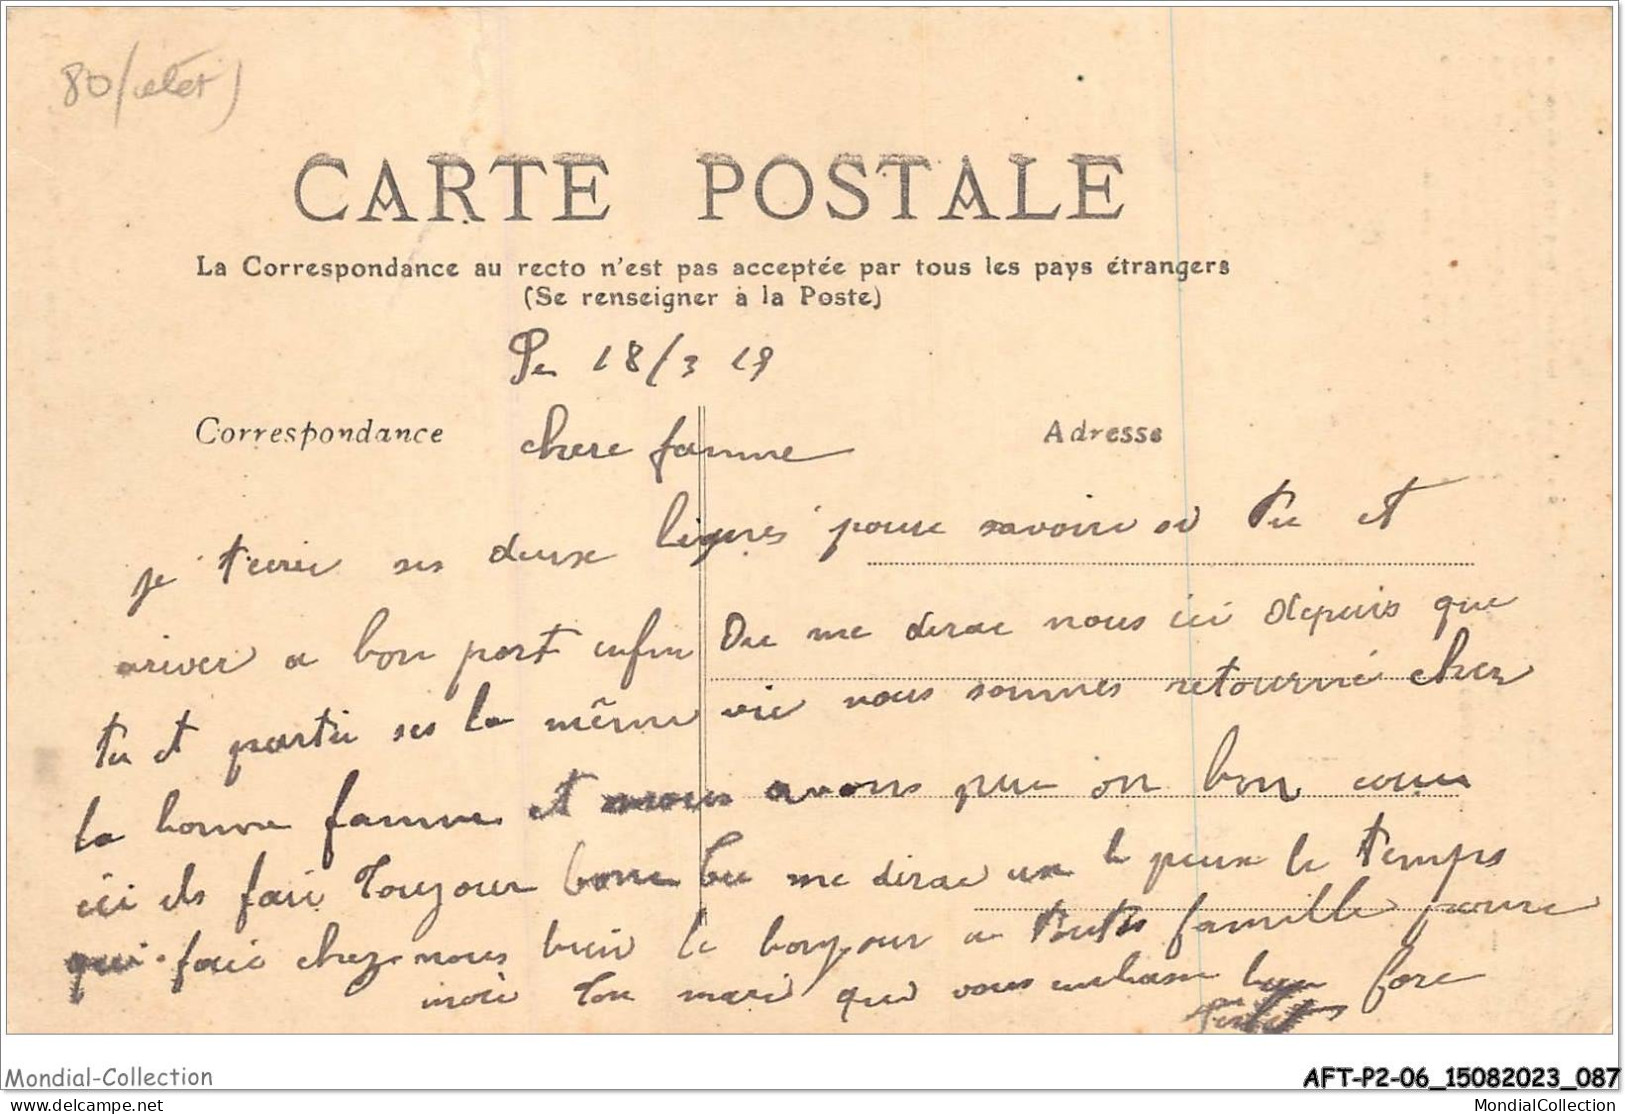 80/
CARTE POSTALE
La Correspondance au recto n'est pas acceptée par tous les pays étrangers
(Se renseigner à la Poste)
18/3 19
Correspondance
Adresse
chere famme
je t'ecri ses deux lignes poure savoire si tu et
ariver a bon port enfin Du me dirac nous ici depuis que
tu et partu ses la même vie nous sommes retourné chez
la bonne famme et nous avons pue on bon
ici ils fai Toujour bone me dirac un peux le temps
qui fai chez nous bien le bonjour a toute famille poure
moi Ton mari qui vous embase bien fore
Mondial-Collection
AFT-P2-06_15082023_087
delcampe.net
MondialCollection